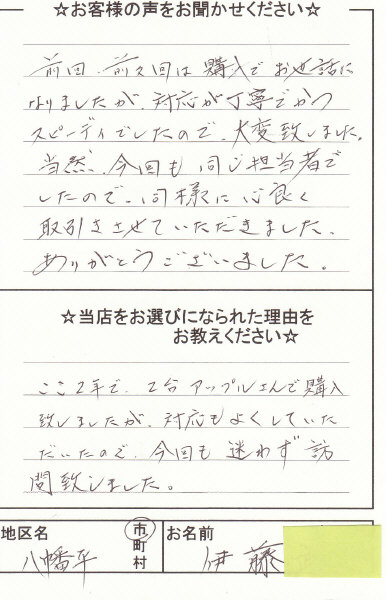 ☆お客様の声をお聞かせください☆
前回、前々回は購入でお世話に
なりましたが、対応が丁寧でかつ
スピーディでしたので、大変致しました。
当然、今回も同じ担当者で
したので、同様に心良く
取引きさせていただきました。
ありがとうございました。
☆当店をお選びになられた理由を
お教えください☆
ここ2年で、2台アップルさんで購入
致しましたが、対応もよくしていた
だいたので、今回も迷わず訪
問致しました。
地区名
八幡平
市
町
村
お名前
伊藤